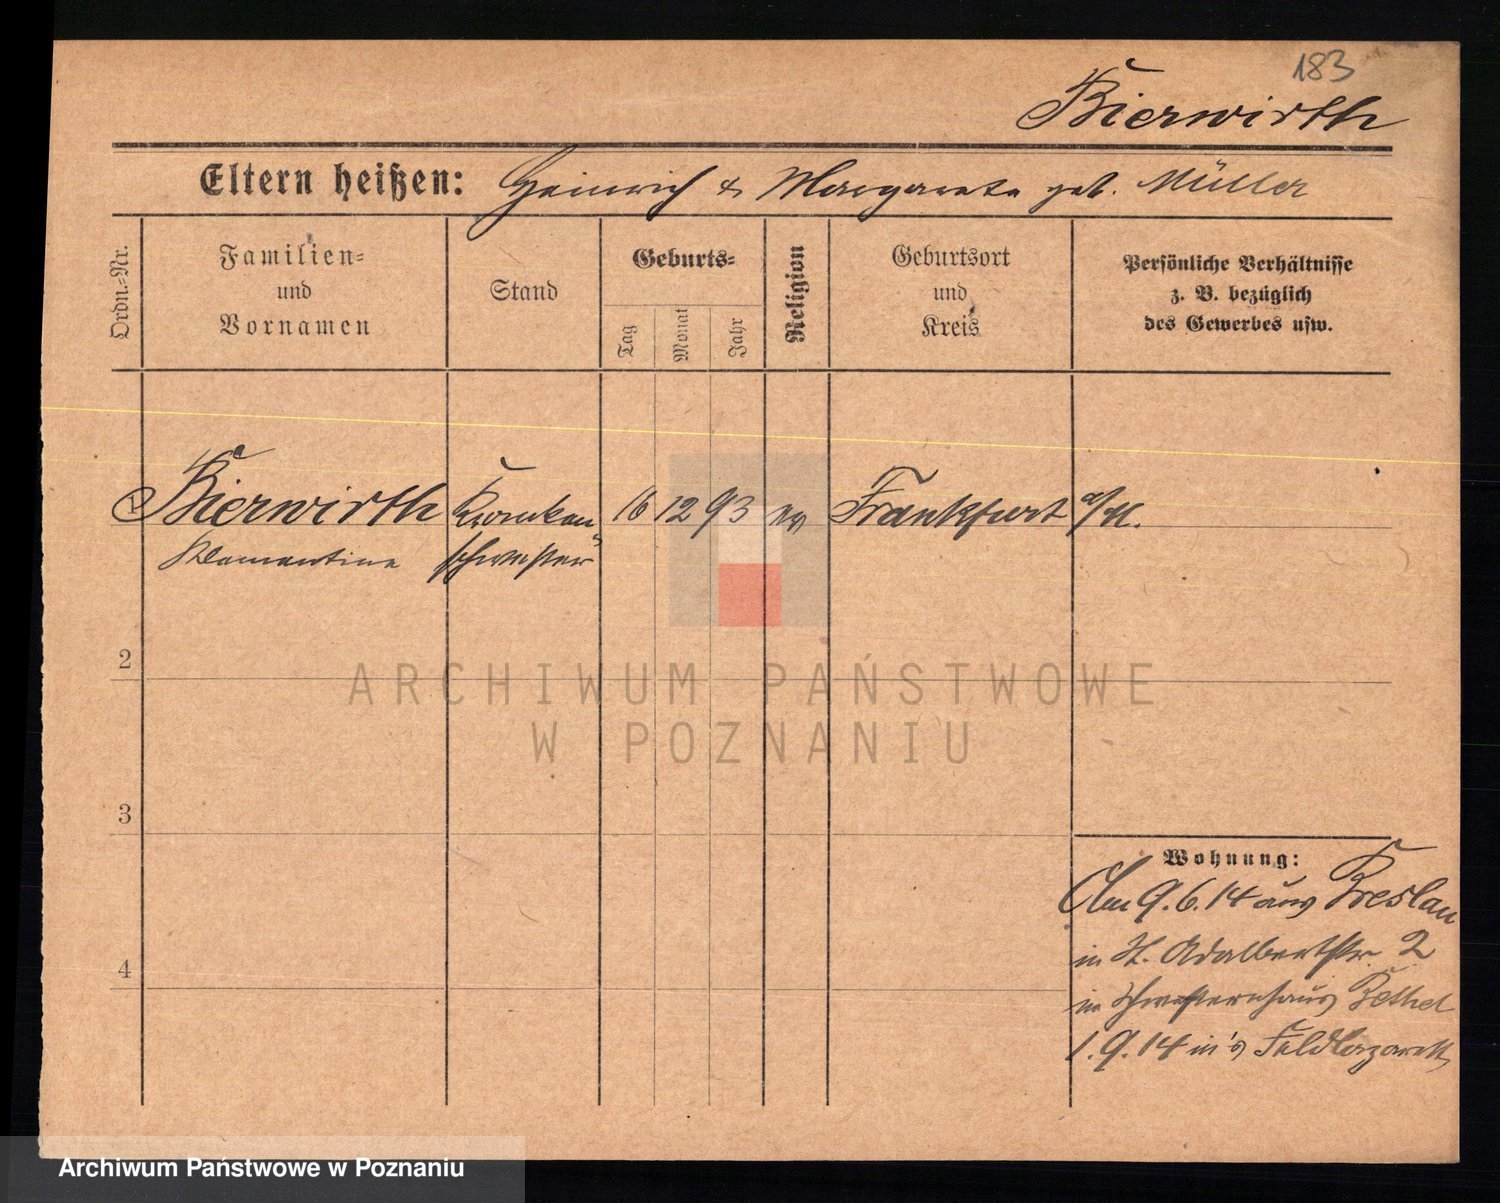 183
Bierwirth
Eltern heißen: Heinrich & Margarete geb. Müller
Ordn.-Nr.
Familien-
und
Vornamen
Stand
Geburts-
Tag
Monat
Jahr
Religion
Geburtsort
und
Kreis
Persönliche Verhältnisse
z. B. bezüglich
des Gewerbes usw.
1 Bierwirth Kranken- 16 12 93 ev Frankfurt a/M.
Klementine schwester
2
3
4
ARCHIWUM PAŃSTWOWE
W POZNANIU
Wohnung:
Am 9.6.14 aus Breslau
in St. Adalbertstr. 2
in Schwesternhaus Bethel
1.9.14 in's Feldlazarett
Archiwum Państwowe w Poznaniu